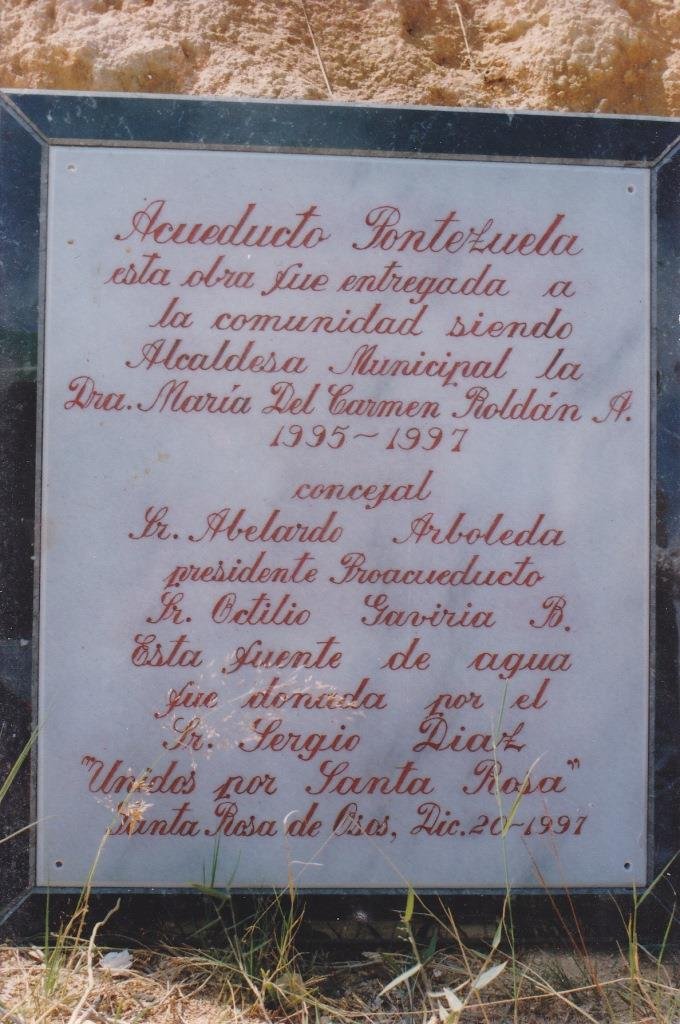 Acueducto Pontezuela
esta obra fue entregada a
la comunidad siendo
Alcaldesa Municipal la
Dra. María Del Carmen Roldán A.
1995~1997
concejal
Sr. Abelardo Arboleda
presidente Proacueducto
Sr. Octilio Gaviria B.
Esta fuente de agua
fue donada por el
Sr. Sergio Diaz
"Unidos por Santa Rosa"
Santa Rosa de Osos, Dic. 20~1997